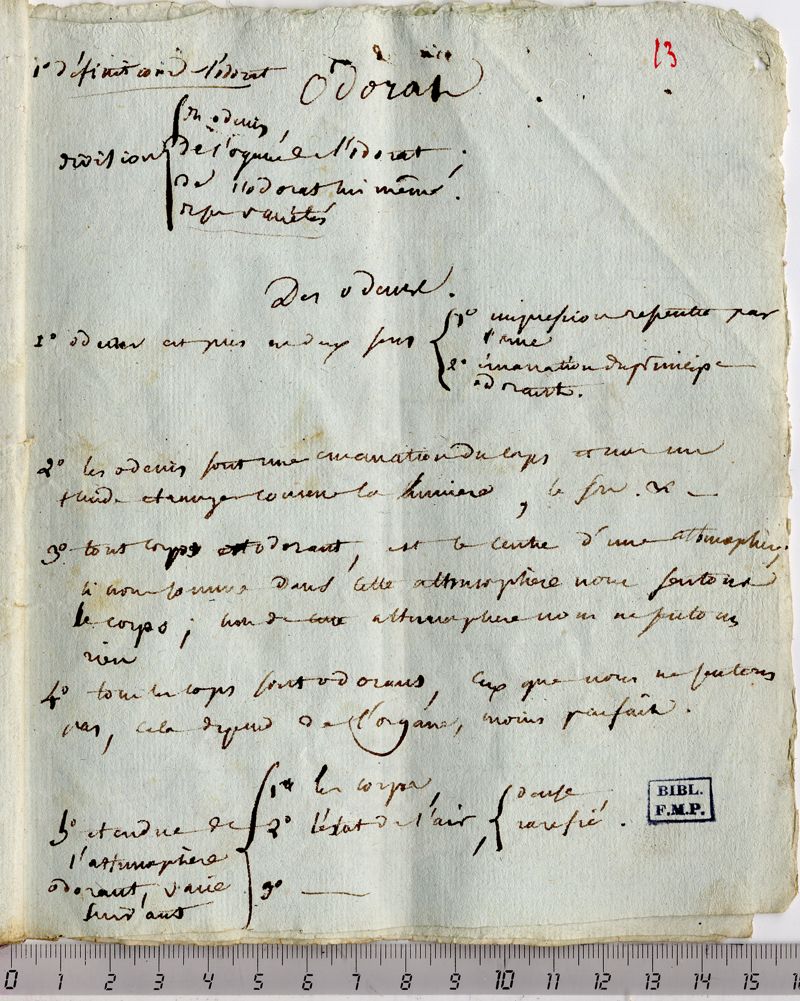 13
1° définition de l'odorat
Odorat
division
des odeurs,
de l'organe de l'odorat;
de l'odorat lui même,
ses variétés
Des odeurs.
1° odeur est pris en deux sens
1° impression ressentie par
l'ame
2° émanation du principe
odorant.
2° les odeurs sont une émanation du corps et non un
fluide étranger comme la lumiere, le son. &
3° tout corps odorant, est le centre d'une attmosphère;
si nous sommes dans cette attmosphère nous sentons
le corps; hors de cette attmosphere nous ne sentons
rien
4° tous les corps sont odorans, ceux que nous ne sentons
pas, cela dépend de l'organe, moins parfait.
5° etendue de
l'attmosphère
odorant, varie
suivant
1° les corps,
2° l'état de l'air,
dense
rarefié.
3°
BIBL.
F.M.P.
0 1 2 3 4 5 6 7 8 9 10 11 12 13 14 15